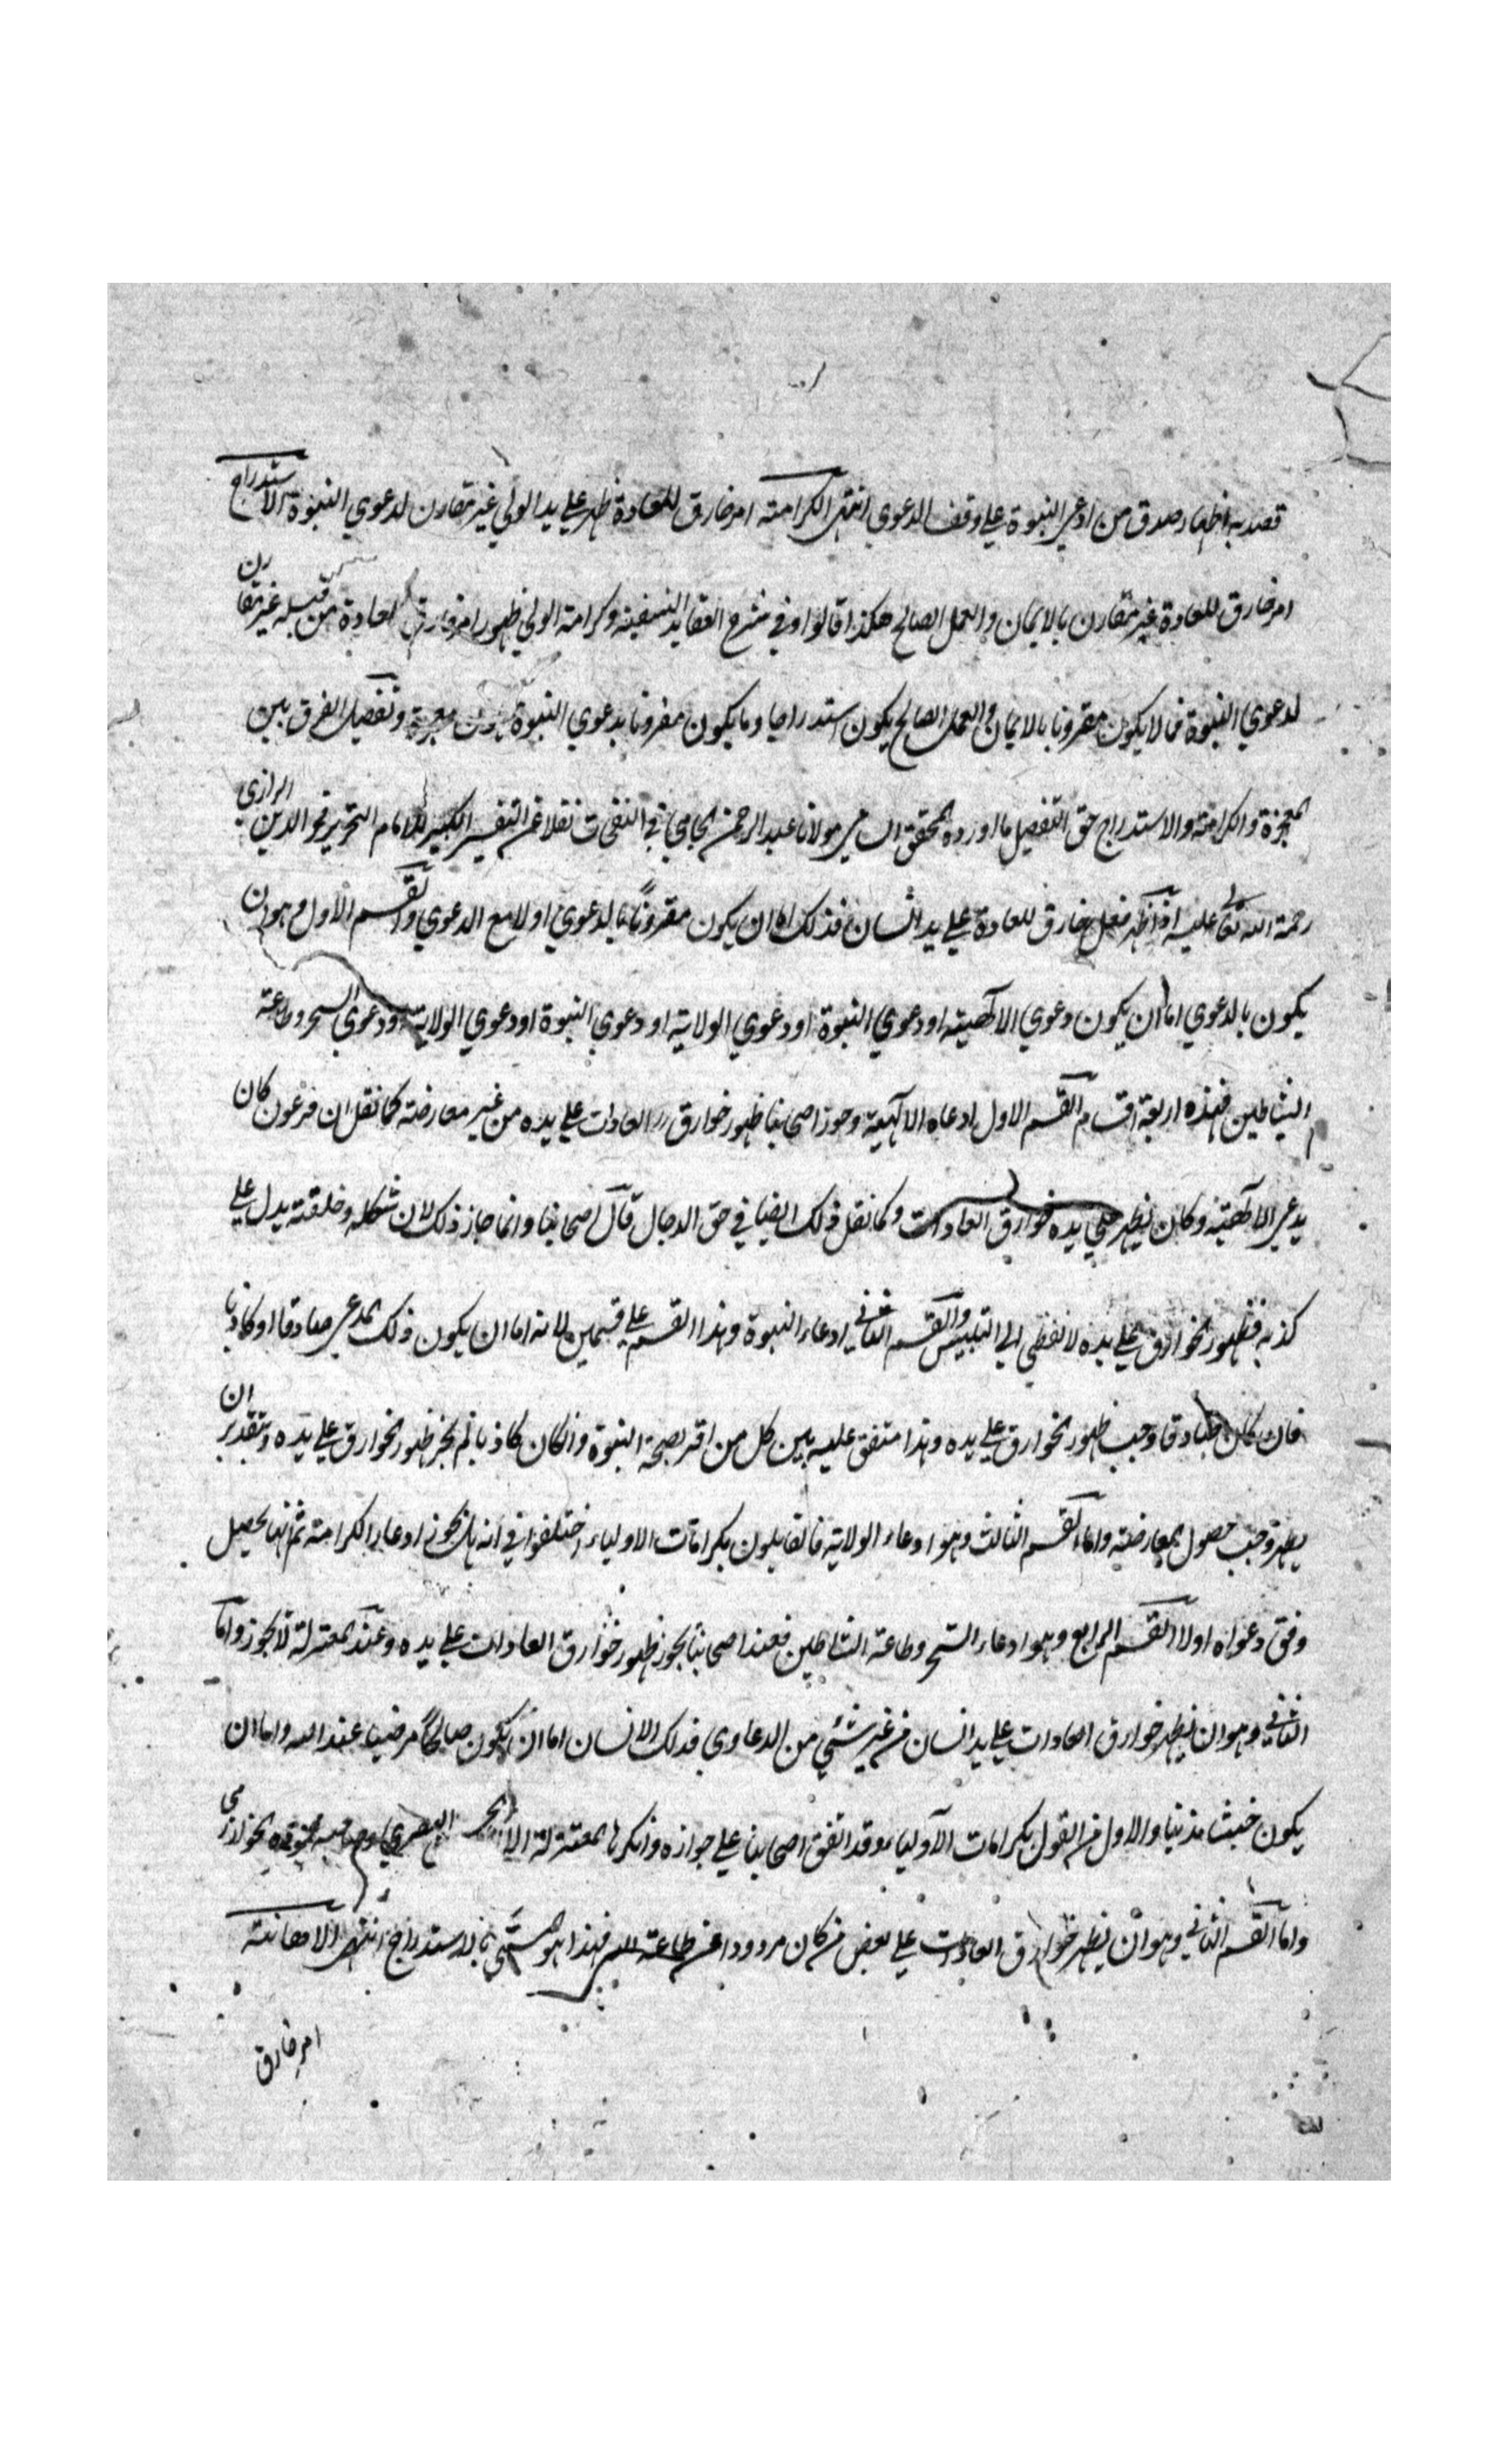 قصد به اظهار صدق من ادعى النبوة على وقف الدعوي انتهى الكرامته امر خارق للعادة ظهر على يد الولي غير مقارن لدعوي النبوة الاستدراج
امر خارق للعادة غير مقارن بالايمان والعمل الصالح هكذا قالوا وفي شرح العقايد النسفية وكرامة الولي ظهور امر خارق لعادة من قبله غير مقارن
لدعوي النبوة فما لا يكون مقرونا بالايمان والعمل الصالح يكون استدراجا وما يكون مقرونا بدعوي النبوة يكون معجزة وتفصيل الفرق بين
المعجزة والكرامة والاستدراج حق التفصيل ما اورده المحقق السامي مولانا عبد الرحمن الجامي في النفحات نقلا عن التفسير الكبير للامام النحرير فخر الدين الرازي
رحمة الله تعالى عليه اذا ظهر فعل خارق للعادة على يد انسان فذلك اما ان يكون مقرونًا بالدعوي او لا مع الدعوي والقسم الاول وهو ان
يكون بالدعوي اما ان يكون دعوي الالهيته او دعوي النبوة او دعوي الولاية او دعوي النبوة او دعوي الولاية او دعوي السحر وطاعة
الشياطين فهذه اربعة اقسام القسم الاول ادعاء الالهية وجوز اصحابنا ظهور خوارق العادات على يده من غير معارضة كما نقل ان فرعون كان
يدعى الالهية وكان يظهر على يده خوارق العادات وكما نقل ذلك ايضا في حق الدجال قال اصحابنا وانما جاز ذلك لان شكله وخلقته يدل على
كذبه فظهور الخوارق على يده لا يفضي الى التلبيس والقسم الثاني ادعاء النبوة وهذا القسم على قسمين لانه اما ان يكون ذلك المدعى صادقا او كاذبا
فان كان صادقا وجب ظهور الخوارق على يده وهذا متفق عليه بين كل من اقر بصحة النبوة وان كان كاذبا لم يجز ظهور الخوارق على يده وبتقدير ان
يظهر وجب حصول المعارضة واما القسم الثالث وهو ادعاء الولاية فالقايلون بكرامات الاولياء اختلفوا في انه هل يجوز ادعاء الكرامة ثم انها يحصل
وفق دعواه او لا القسم الرابع وهو ادعاء السحر وطاعة الشياطين فعند اصحابنا يجوز ظهور خوارق العادات على يده وعند المعتزلة لا يجوز واما
الثاني وهو ان يظهر خوارق العادات على يد انسان من غير شئي من الدعاوي فذلك الانسان اما ان يكون صالحًا مرضيا عند الله واما ان
يكون خبيثا مذنبا والاول من القول بكرامات الاولياء وقد اتفق اصحابنا على جوازه وانكرها المعتزلة الا البصري وصاحبه محمود الخوارزمي
واما القسم الثاني وهو ان يظهر خوارق العادات على بعض من كان مردودا عن طاعة الله فهذا هو المسمى بالاستدراج انتهى الاهانة
امر خارق